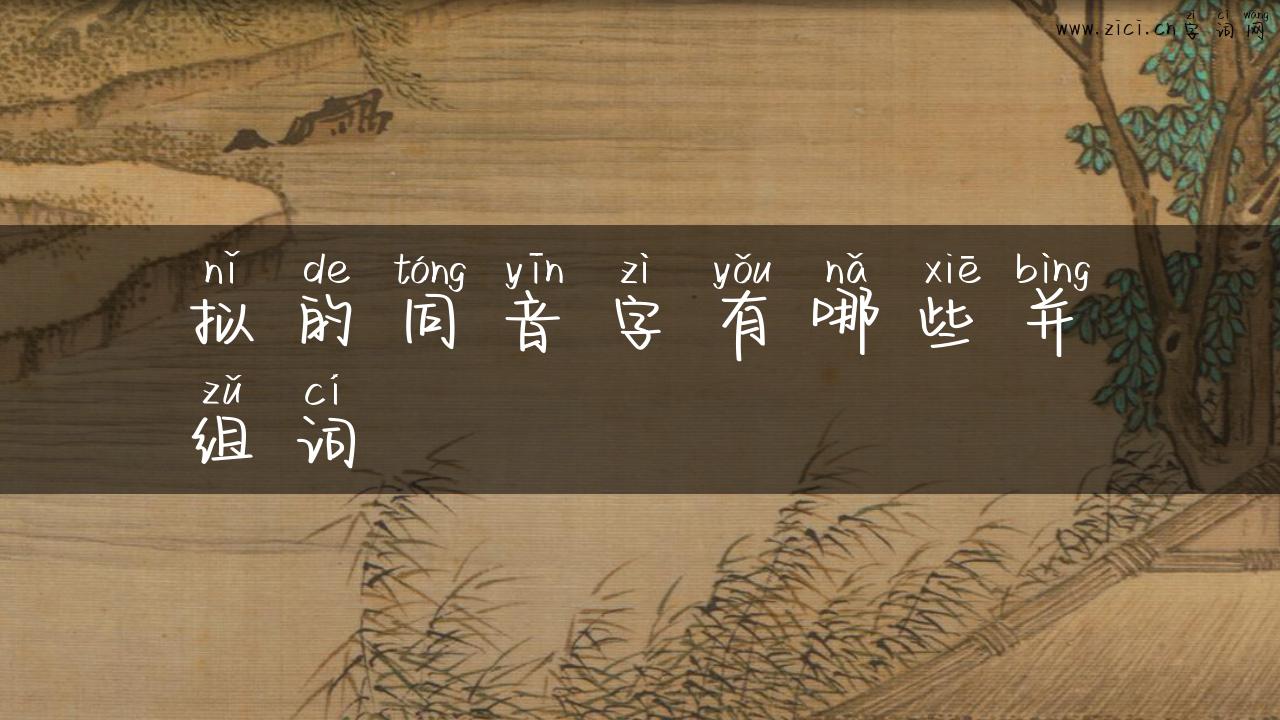 zì cí wǎng
www.zici.cn字词网
nǐ de tóng yīn zì yǒu nǎ xiē bìng
拟的同音字有哪些并
zǔ cí
组词